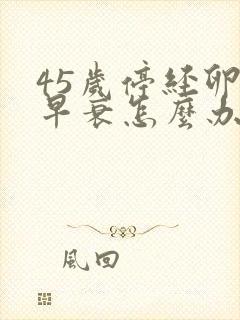 45歲停經卵
早衰怎麼办
風回